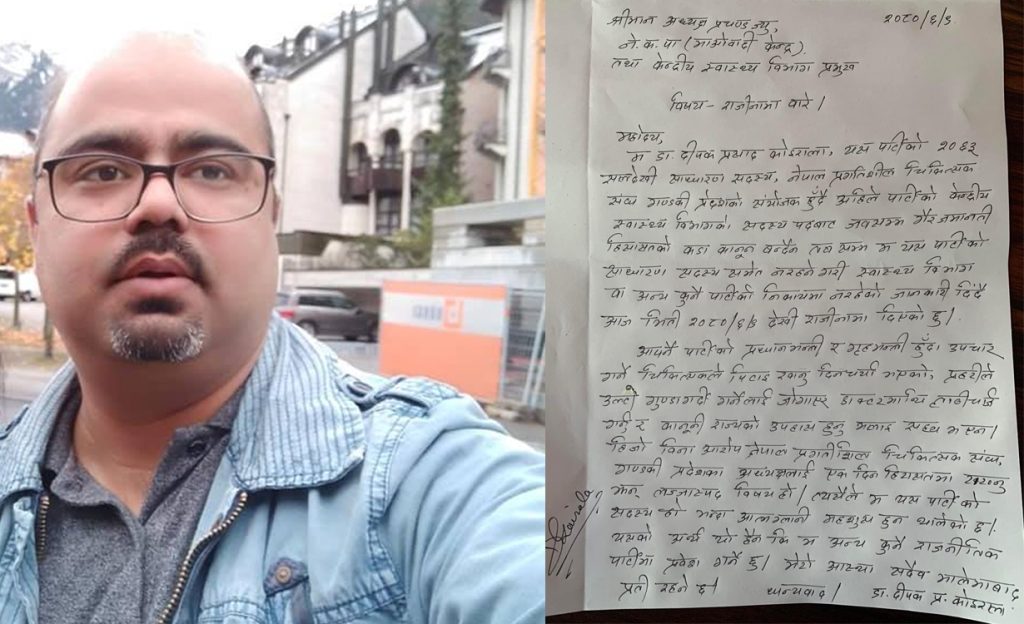 श्रीमान अध्यक्ष प्रचण्ड ज्यु, २०८०/६/३
ने.क.पा (माओवादी केन्द्र)
तथा केन्द्रीय स्वास्थ्य विभाग प्रमुख
विषय - राजीनामा बारे।
महोदय,
म डा. दीपक प्रसाद कोइराला, यस पार्टीको २०६३
सालदेखी साधारण सदस्य, नेपाल प्रगतिशील चिकित्सक
संघ गण्डकी प्रदेशको संयोजक हुँदै अहिले पार्टीको केन्द्रीय
स्वास्थ्य विभागको सदस्य पदबाट जबसम्म गैरजमानती
हिरासतको कडा कानून बन्दैन तब सम्म म यस पार्टीको
साधारण सदस्य समेत नरहने गरी स्वास्थ्य विभाग
वा अन्य कुनै पार्टीको निकायमा नरहेको जानकारी दिँदै
आज मिती २०८०/६/३ देखी राजीनामा दिएको छु।
आफ्नै पार्टीको प्रधानमन्त्री र गृहमन्त्री हुँदा उपचार
गर्ने चिकित्सकले पिटाइ खानु दिनचर्या भएको, प्रहरीले
उल्टो गुण्डागर्दी गर्नेलाई जोगाएर डाक्टरमाथि लाठीचार्ज
गर्नु र कानूनी राज्यको उपहास हुनु मलाई सह्य भएन।
हिजो विना आरोप नेपाल प्रगतिशिल चिकित्सक संघ,
गण्डकी प्रदेशका अध्यक्षलाई एक दिन हिरासतमा राख्नु
झन् लज्जास्पद विषय हो। त्यसैले म यस पार्टीको
सदस्य हो भन्दा आत्मग्लानी महशुस हुन थालेको छ।
यसको अर्थ यो हैन कि म अन्य कुनै राजनीतिक
पार्टीमा प्रवेश गर्नै छु। मेरो आस्था सदैव मालेमावाद
प्रती रहने छ। धन्यवाद। डा. दीपक प्र. कोइराला